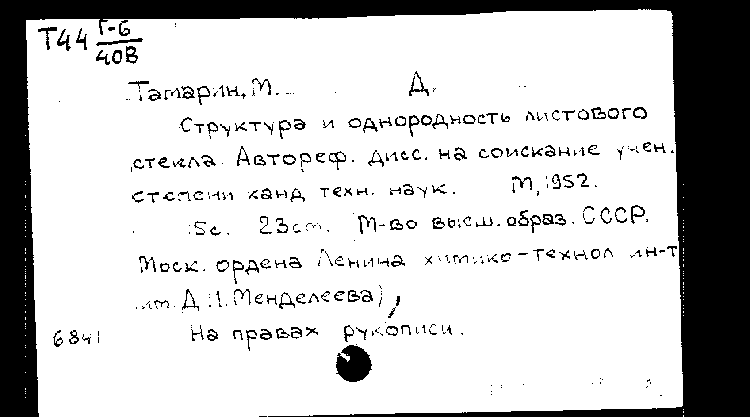 Т44 Г-6
40В
Тамарин, М. Д.
Структура и однородность листового
стекла. Автореф. дисс. на соискание учен.
степени канд техн. наук. М, 1952.
15с. 23см. М-во высш. образ. СССР.
Моск. ордена Ленина химико-технол ин-т
им. Д.И. Менделеева),
6841 На правах рукописи.